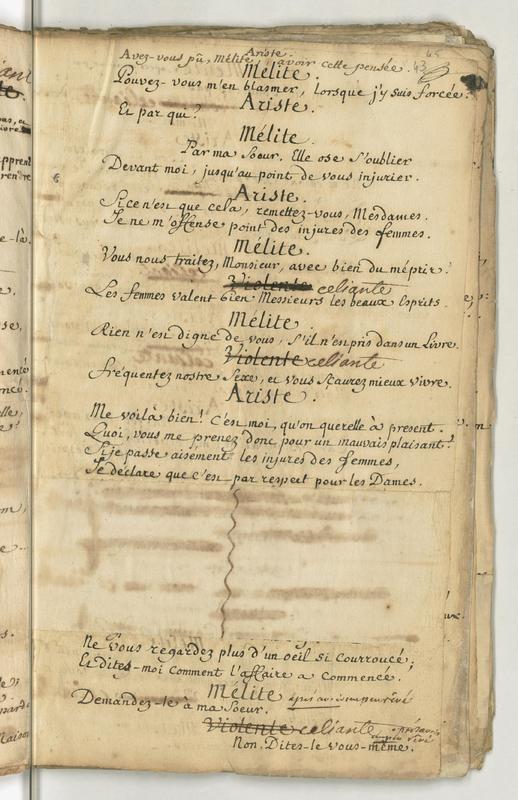 45
43
Ariste.
Avez-vous pû, Mélite, avoir cette pensée.
Mélite.
Pouvez-vous m'en blasmer, lorsque j'y suis forcée.
Ariste.
Et par qui?
Mélite.
Par ma Sœur. Elle ose s'oublier
Devant moi, jusqu'au point de vous injurier.
Ariste.
Si ce n'est que cela, remettez-vous, Mesdames.
Je ne m'offense point des injures des femmes.
Mélite.
Vous nous traitez, Monsieur, avec bien du mépris?
Violente celiante
Les femmes valent bien Messieurs les beaux Esprits.
Mélite.
Rien n'est digne de vous, s'il n'en pris dans un Livre.
Violente celiante
fréquentez nostre Sexe, et vous sçaurez mieux vivre.
Ariste.
Me voilà bien! C'est moi, qu'on querelle à present.
Quoi, vous me prenez donc pour un mauvais plaisant?
Si je passe aisement les injures des femmes,
Je declare que c'est par respect pour les Dames.
Ne vous regardez plus d'un oeil si courroucé;
Et dites-moi comment l'affaire a commencé.
Mélite après avoir un peu rêvé
Demandez-le à ma Soeur.
Violente celiante après avoir
un peu rêvé
Non. Dites-le vous-même.